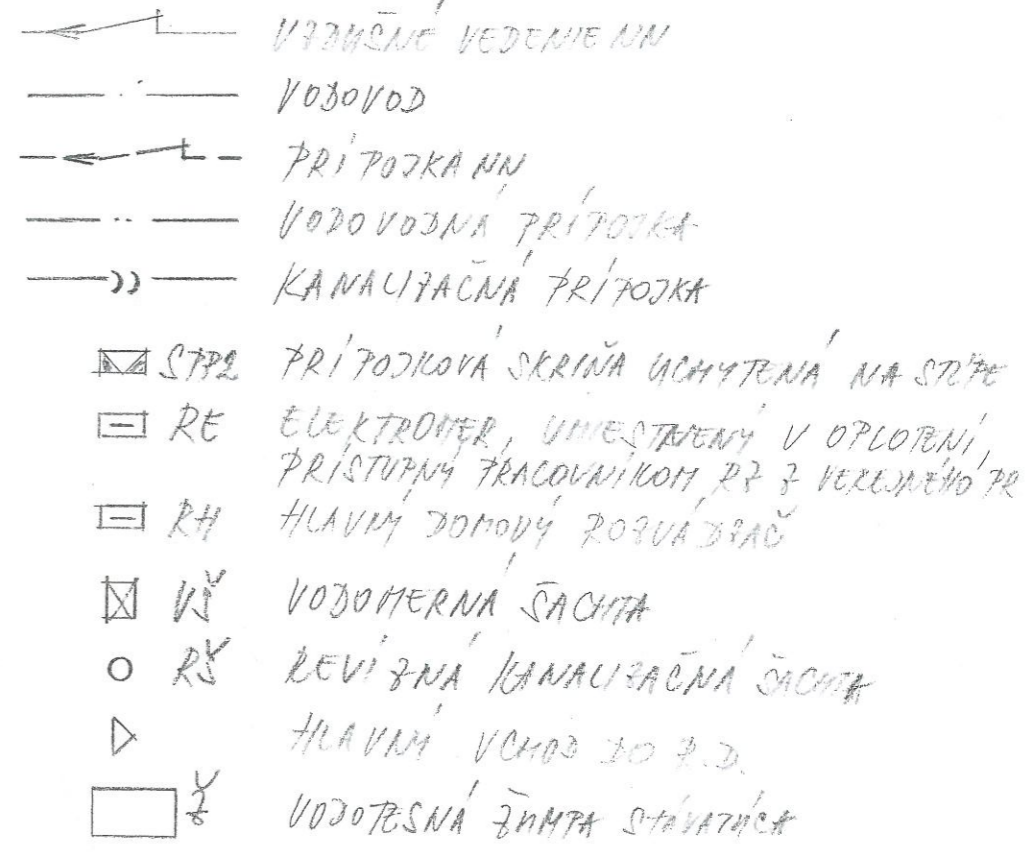 VZDUŠNÉ VEDENIE NN
VODOVOD
PRÍPOJKA NN
VODOVODNÁ PRÍPOJKA
KANALIZAČNÁ PRÍPOJKA
SPP2 PRÍPOJKOVÁ SKRIŇA UCHYTENÁ NA STĹPE
RE ELEKTROMER, UMIESTNENÝ V OPLOTENÍ,
PRÍSTUPNÝ PRACOVNÍKOM RZ Z VEREJNÉHO PR
RH HLAVNÝ DOMOVÝ ROZVÁDZAČ
VŠ VODOMERNÁ ŠACHTA
RŠ REVÍZNÁ KANALIZAČNÁ ŠACHTA
HLAVNÝ VCHOD DO R.D.
Ž VODOTESNÁ ŽUMPA STÁVAJÚCA